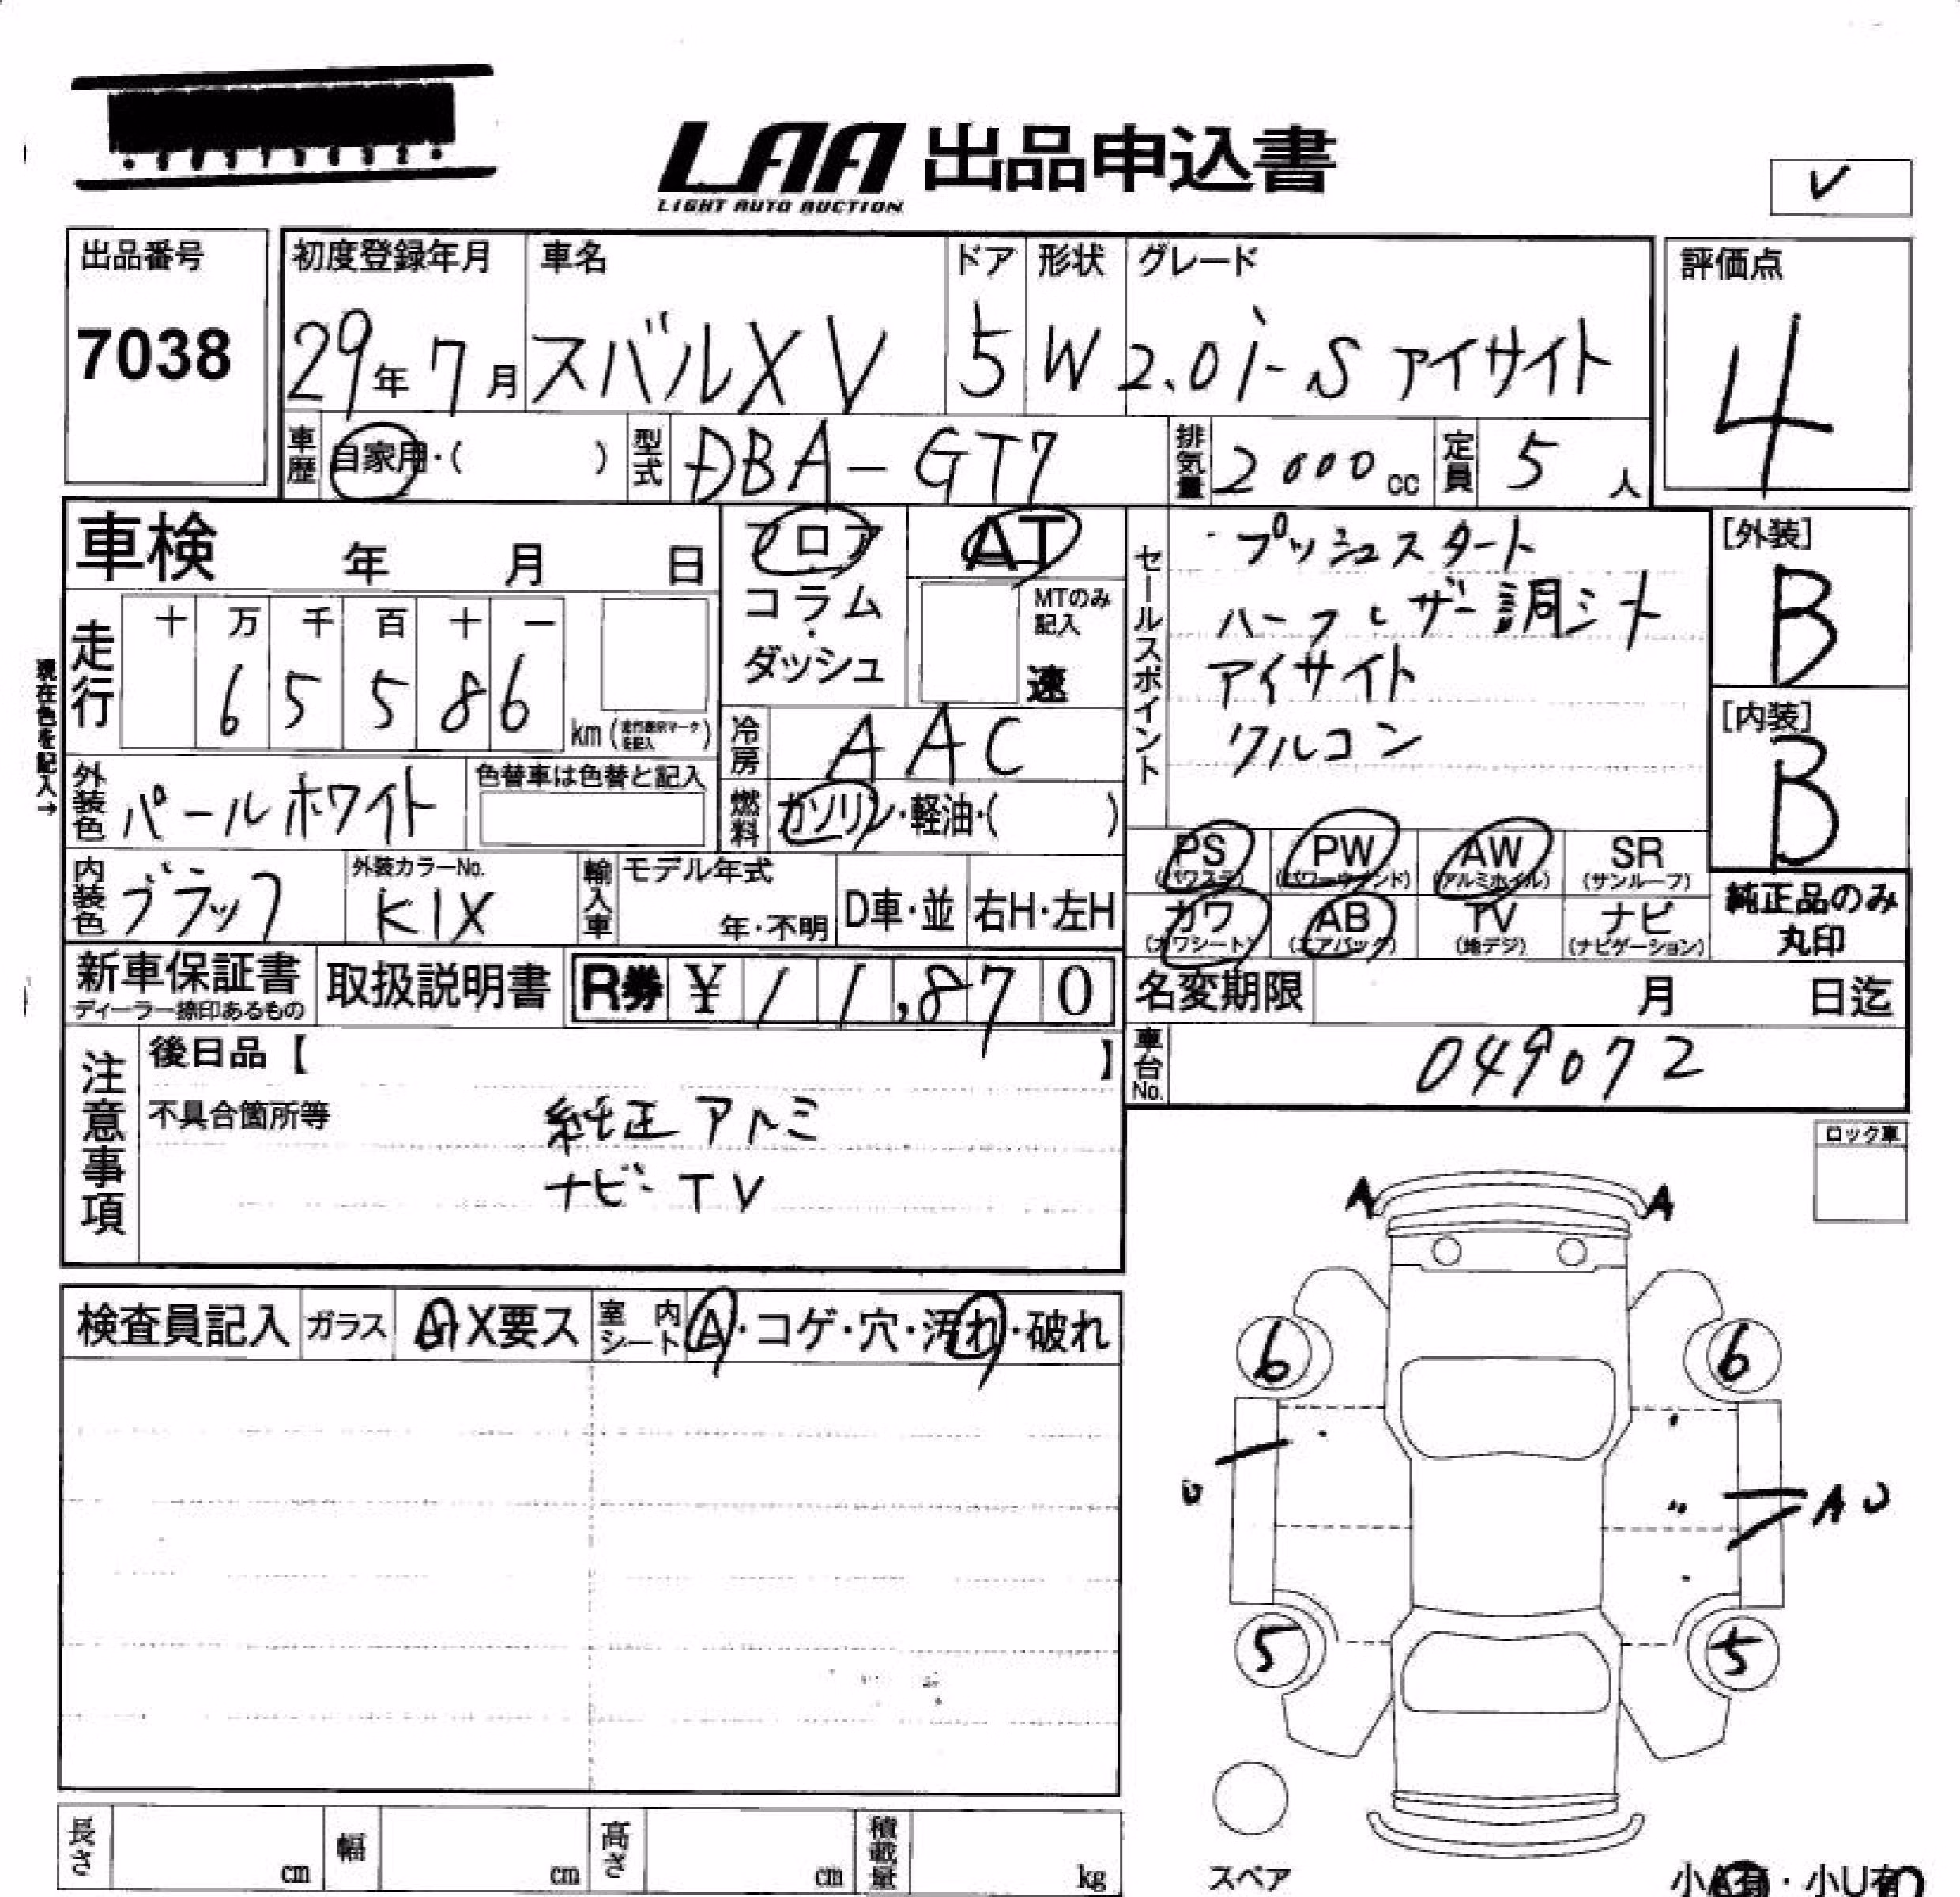 LAA 出品申込書
LIGHT AUTO AUCTION
✓
出品番号
7038
初度登録年月 車名 ドア 形状 グレード
29年 7月 スバルXV 5 W 2.0i-S アイサイト
評価点
4
車歴 自家用・( ) 型式 DBA-GT7 排気量 2000cc 定員 5人
車検 年 月 日
フロア
コラム
・
ダッシュ
AT
MTのみ
記入
速
セールスポイント
・プッシュスタート
ハーフレザー調シート
アイサイト
クルコン
[外装]
B
[内装]
B
現在色を記入→
走行
十 万 千 百 十 一
6 5 5 8 6
km(
)
冷房 AAC
外装色 パールホワイト
色替車は色替と記入
燃料 ガソリン・軽油・( )
PS PW AW SR
(パワステ) (パワーウインド) (アルミホイル) (サンルーフ)
カワ AB TV ナビ
(カワシート) (エアバック) (地デジ) (ナビゲーション)
純正品のみ
丸印
内装色 ブラック
外装カラーNo.
K1X
輸入車
モデル年式
年・不明
D車・並 右H・左H
新車保証書
ディーラー捺印あるもの
取扱説明書
R券 ¥ 11,870
名変期限 月 日迄
車台No. 049072
注意事項
後日品【 】
不具合箇所等
純正アルミ
ナビ・TV
ロック車
検査員記入 ガラス X要ス 室内シート A・コゲ・穴・汚れ・破れ
A A
6 6
U
A U
5 5
スペア
長さ cm 幅 cm 高さ cm 積載量 kg
小A有・小U有